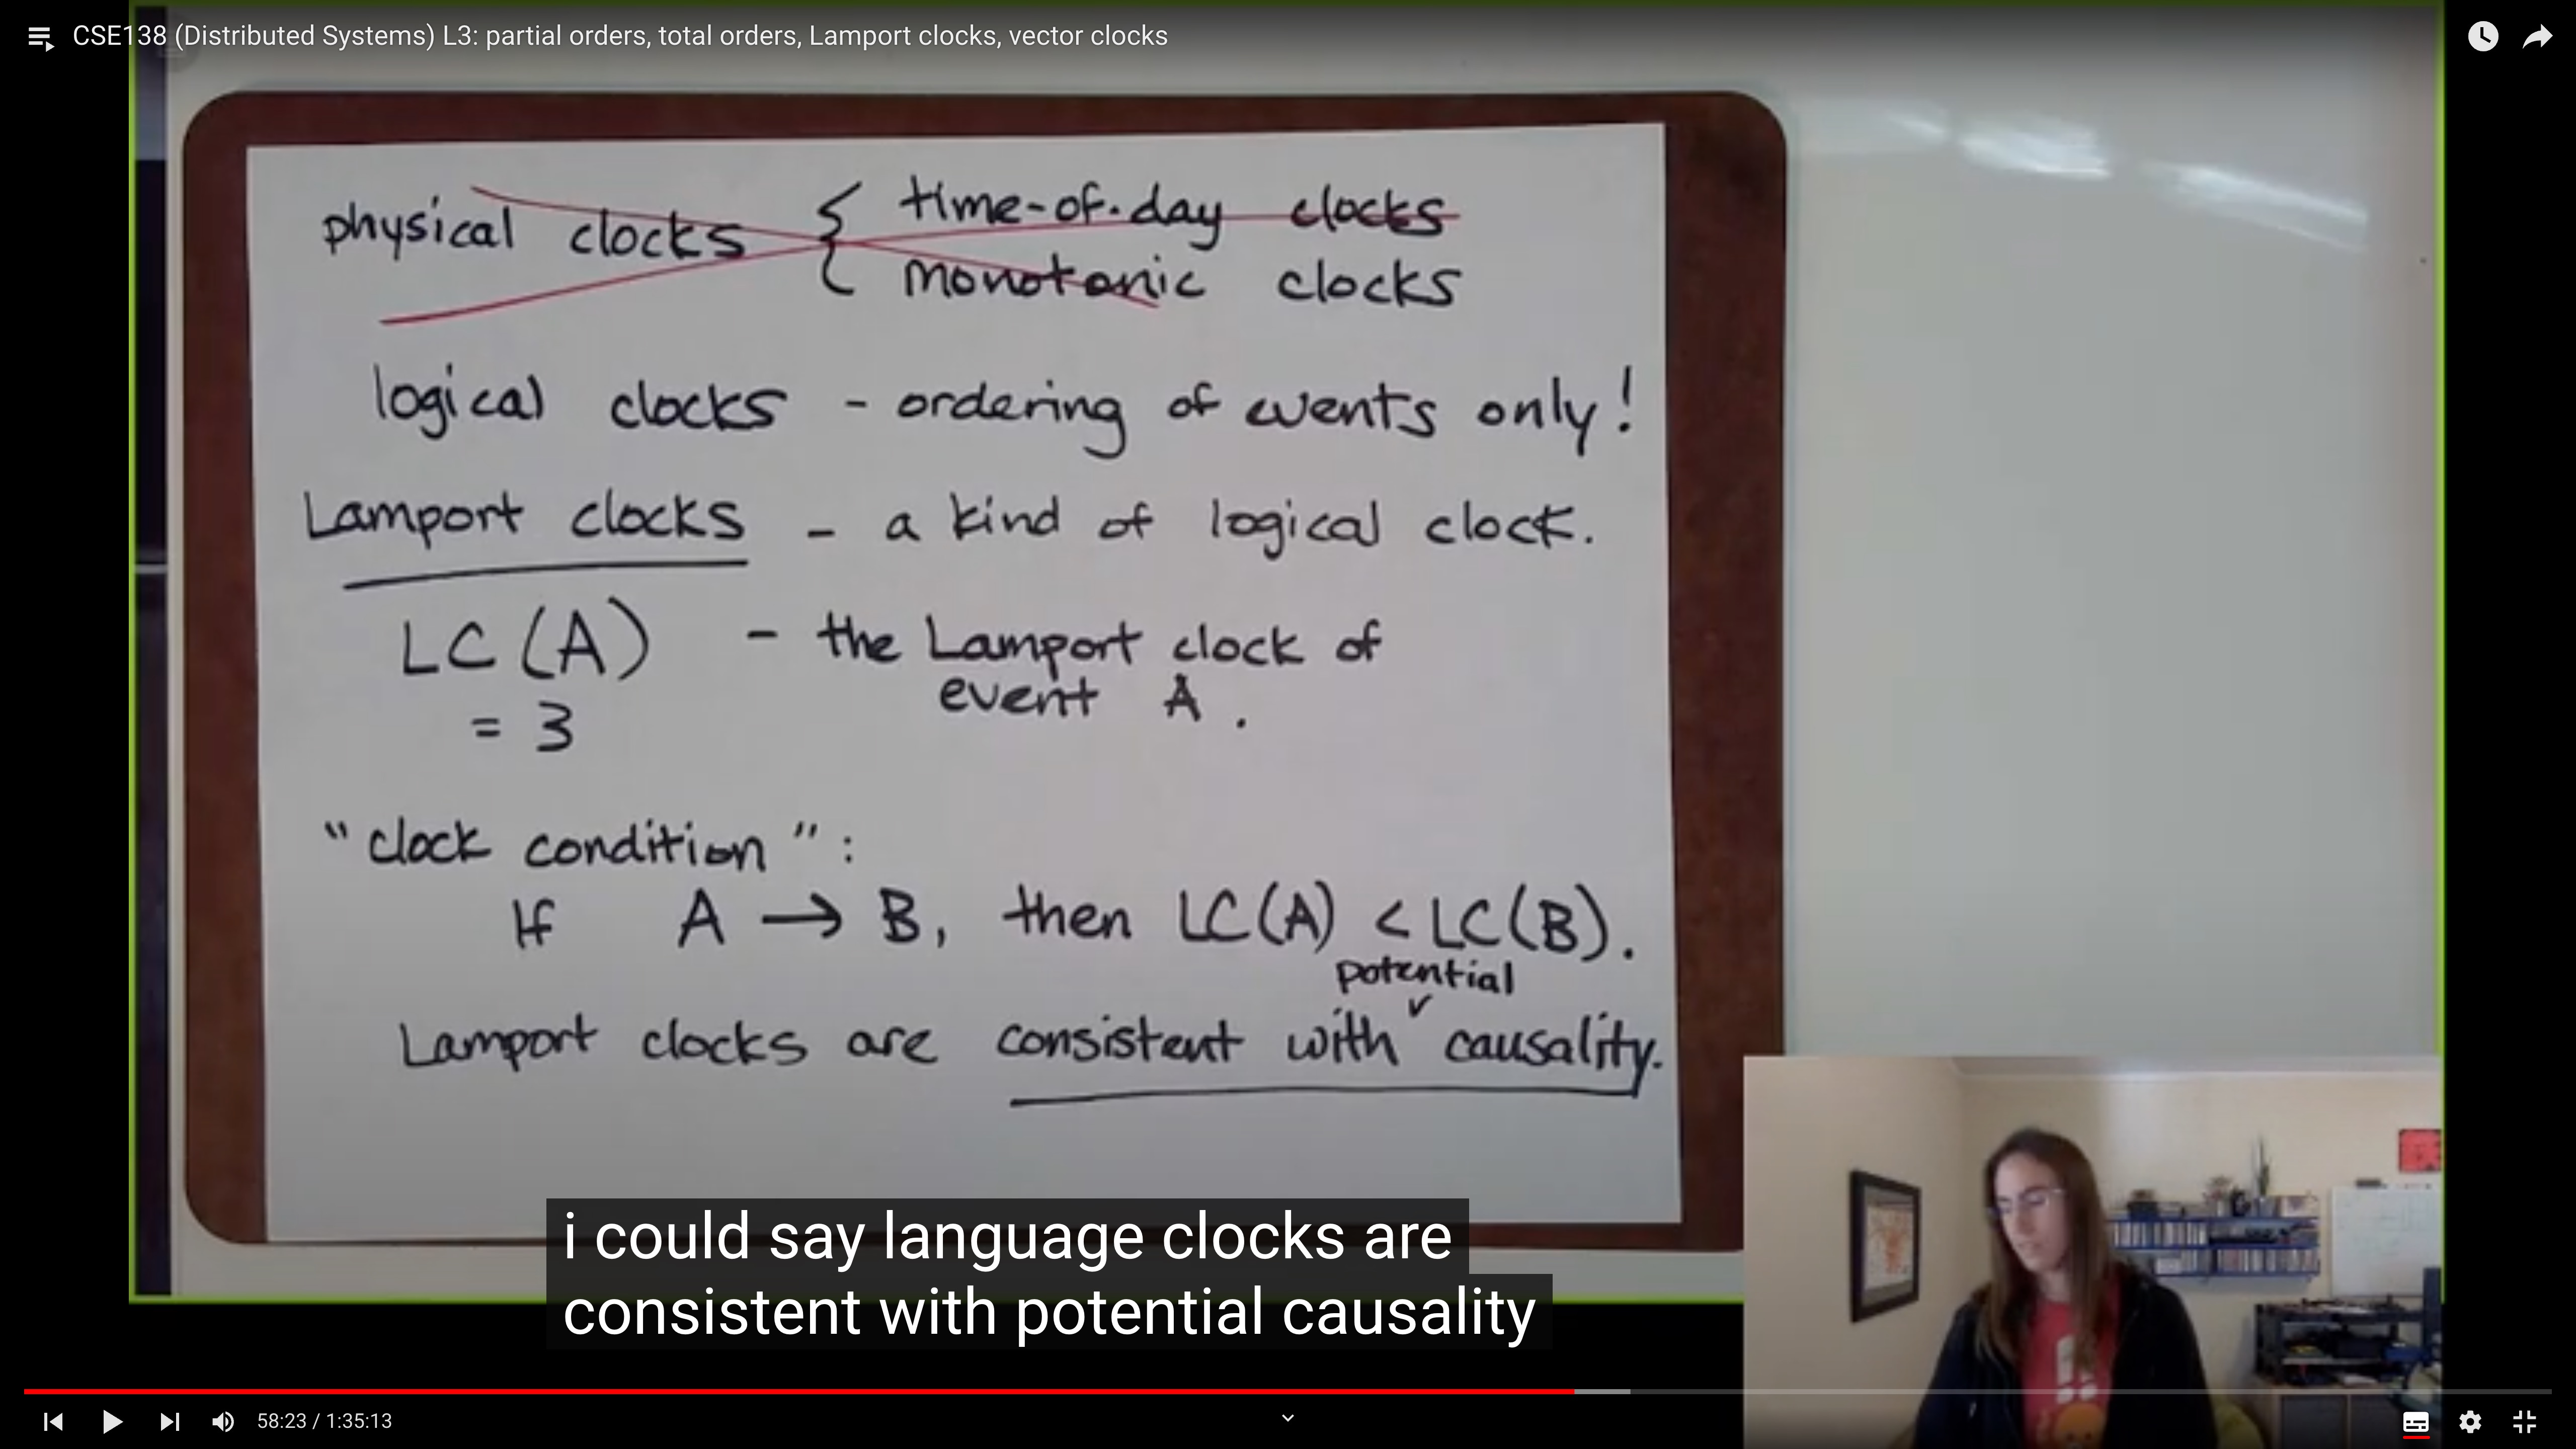 CSE138 (Distributed Systems) L3: partial orders, total orders, Lamport clocks, vector clocks
physical clocks { time-of-day clocks
monotonic clocks
logical clocks - ordering of events only!
Lamport clocks - a kind of logical clock.
LC (A) - the Lamport clock of
event A.
= 3
"clock condition":
If A → B, then LC(A) < LC(B).
potential
Lamport clocks are consistent with ✓ causality.
i could say language clocks are
consistent with potential causality
58:23 / 1:35:13